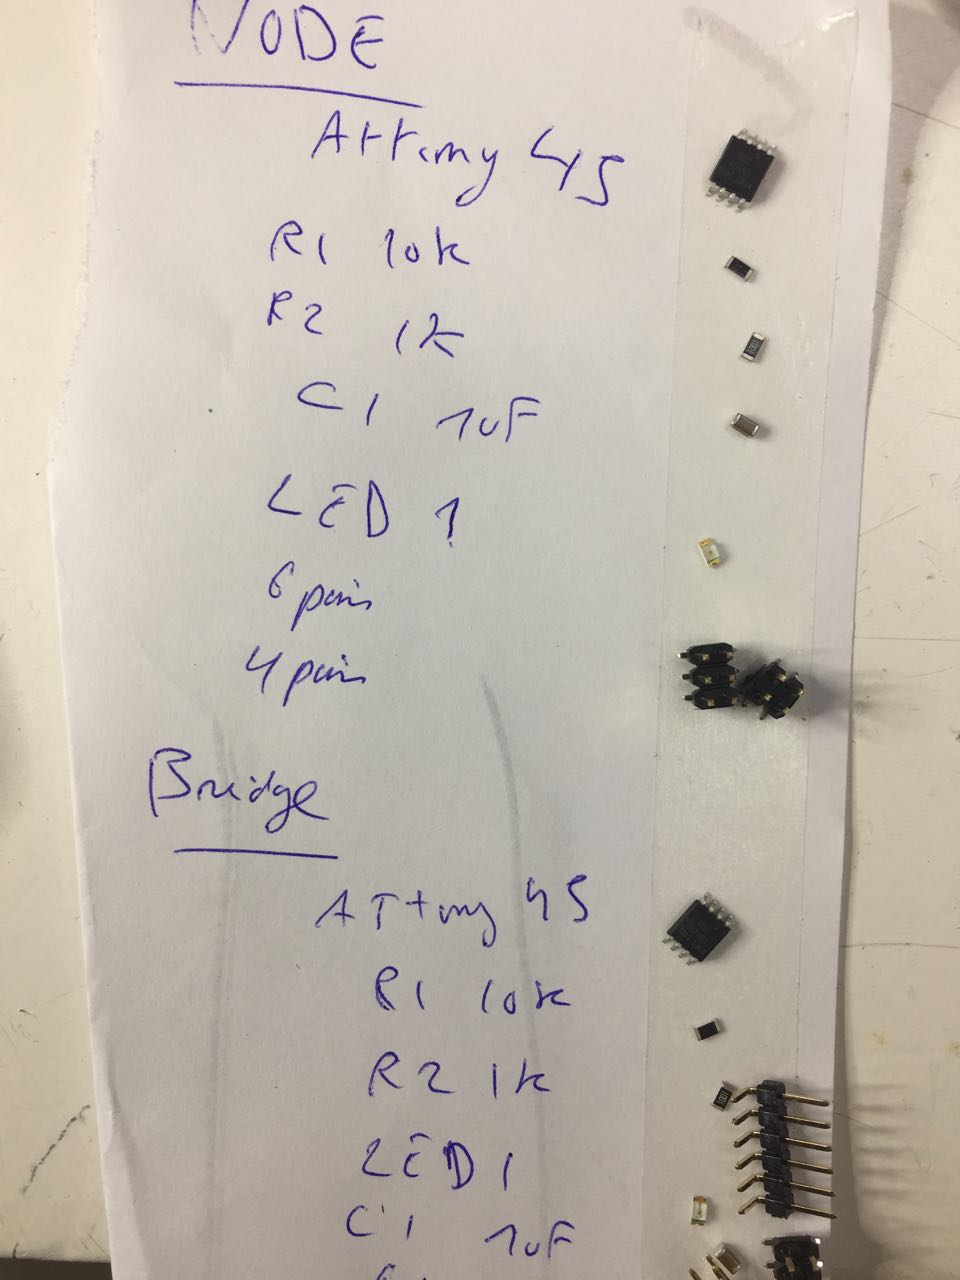 NODE
Attiny 45
R1 10k
R2 1k
C1 1uF
LED 1
6 pin
4 pin
Bridge
ATtiny 45
R1 10k
R2 1k
LED 1
C1 1uF